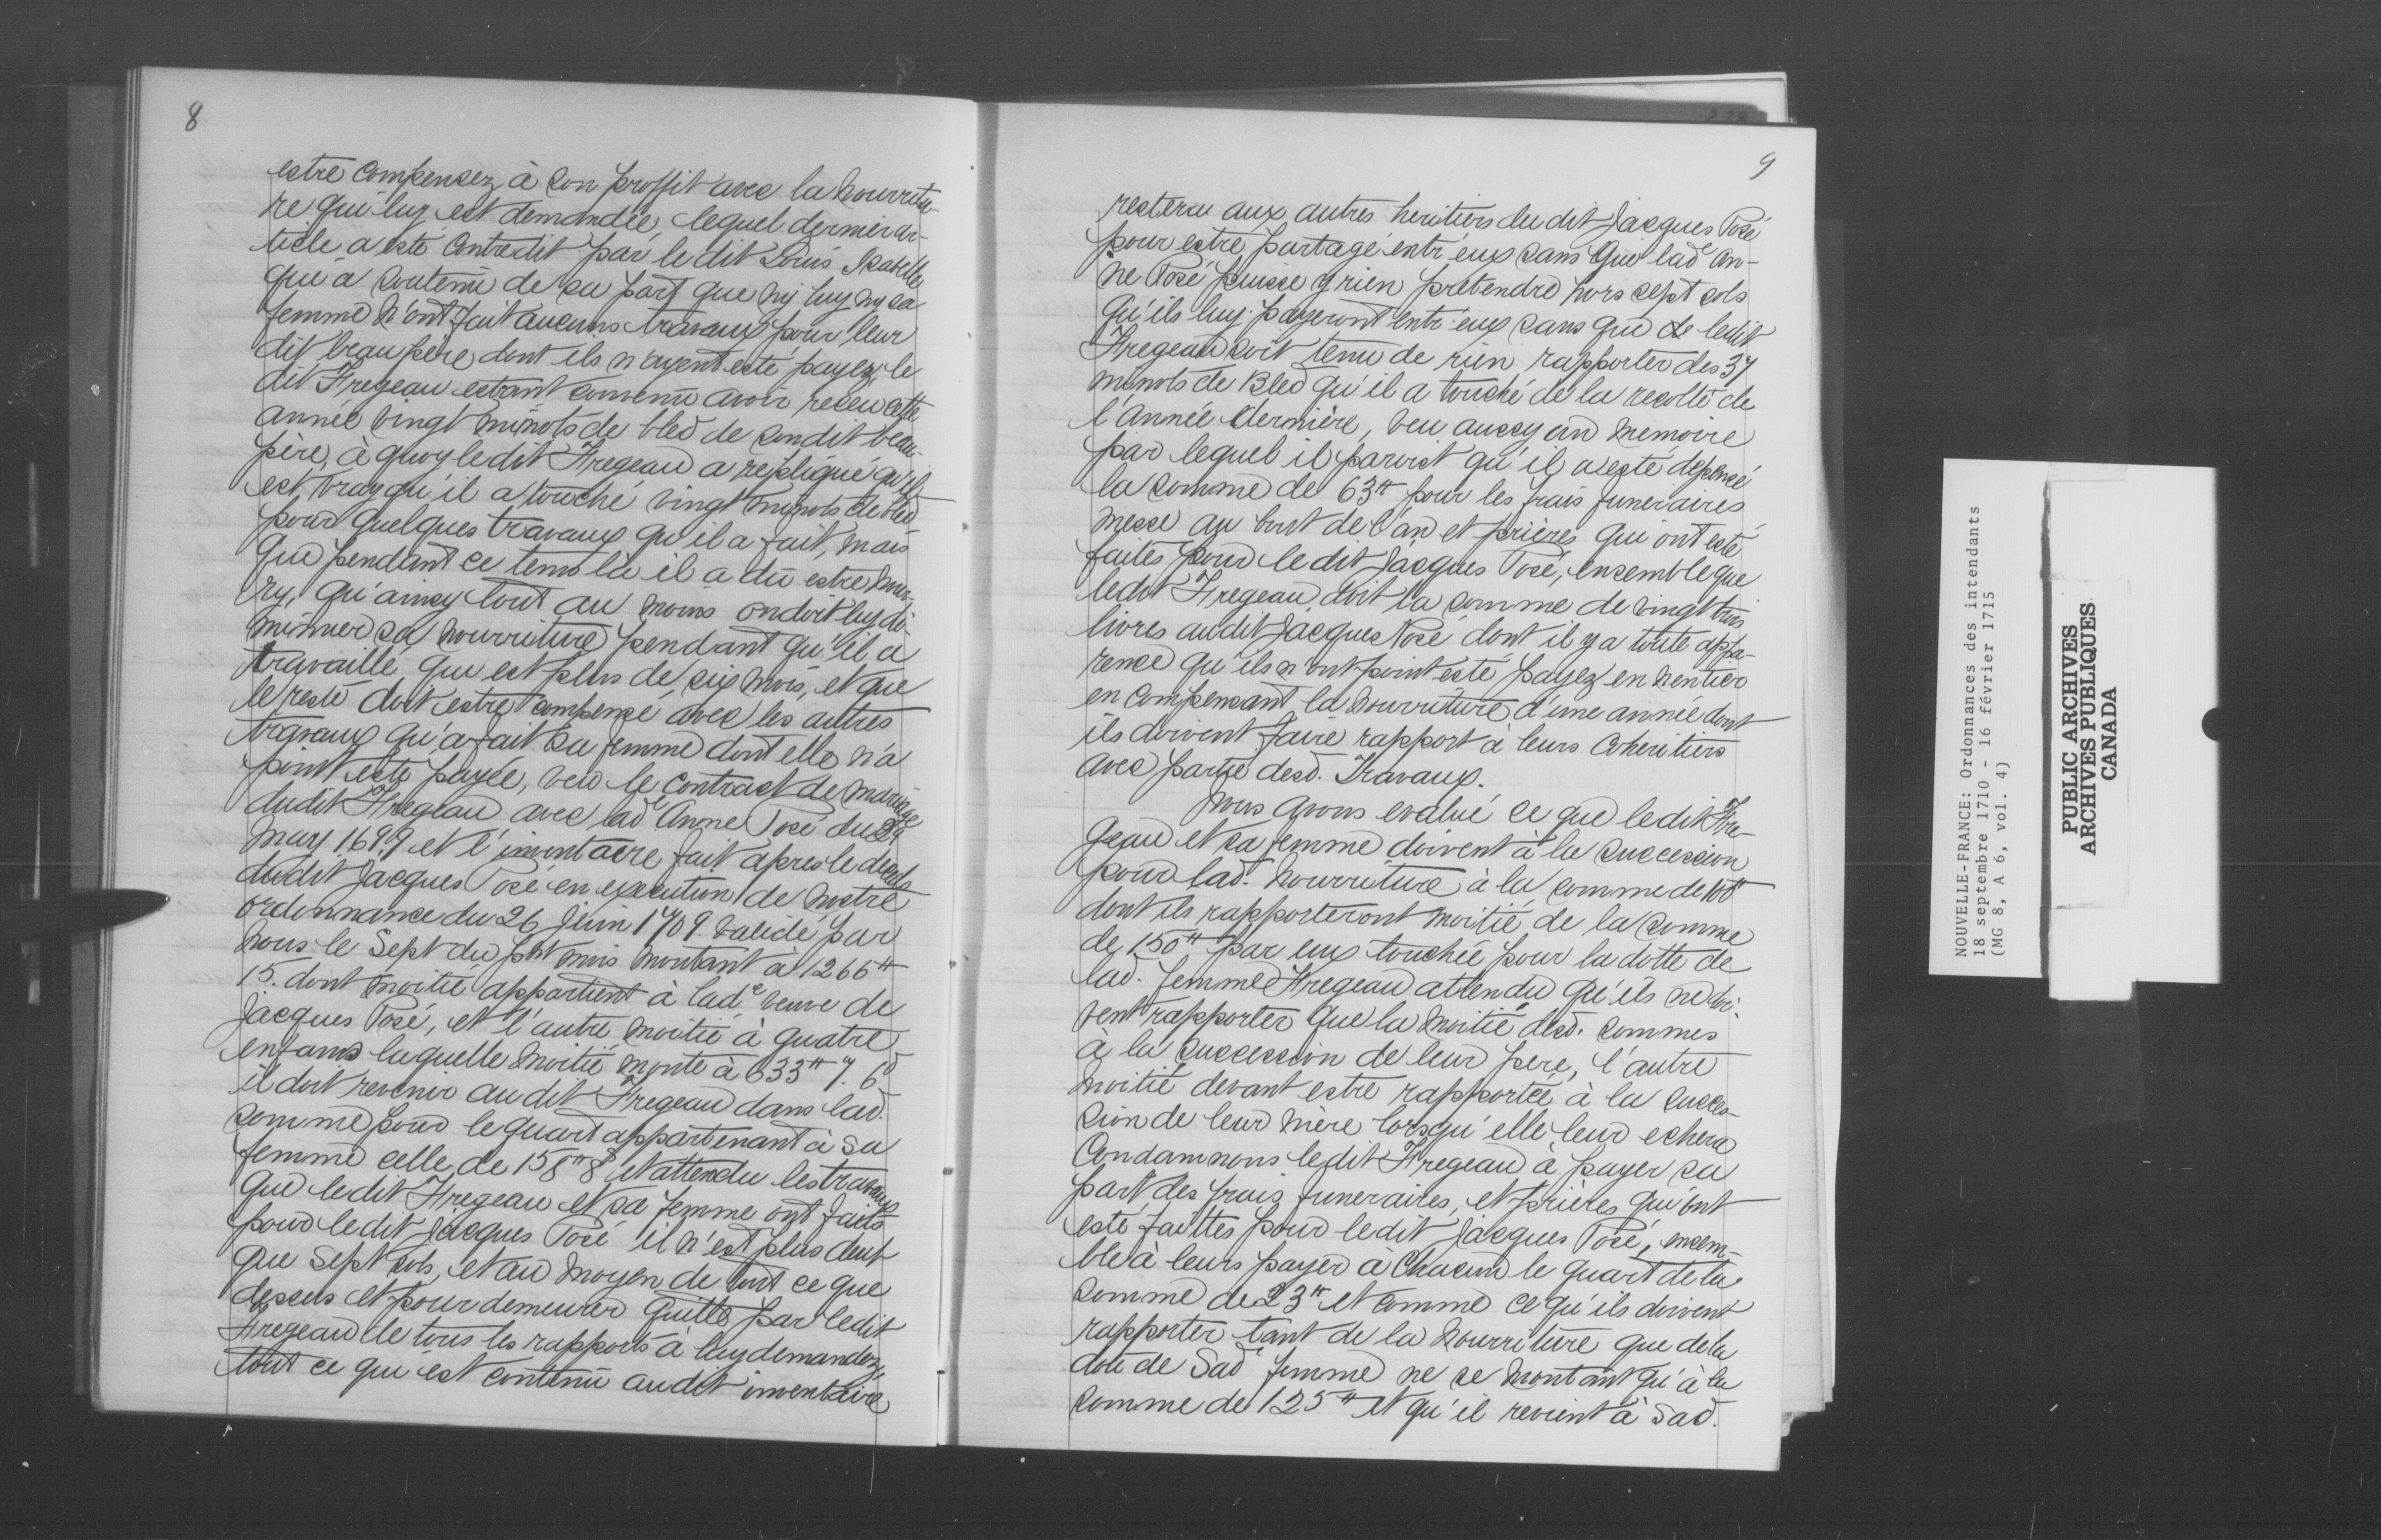 8
estre compensez à son proffit avec la nourritu-
re qui luy est demandée, lequel dernier ar-
ticle a esté contredit par le dit Louis Isabelle
qui a soutenu de sa part que ny luy ny sa
femme n'ont fait aucuns travaux pour leur
dit beau père dont ils n'ayent esté payez, le
dit Fregeau estant convenu avoir receu cette
année vingt minots de bled de sondit beau-
père, à quoy ledit Fregeau a repliqué qu'il
est vray qu'il a touché vingt minots de bled
pour quelques travaux qu'il a fait, mais
que pendant ce tems là il a dû estre nour-
ry, qu'ainsy tout au moins on doit luy di-
minuer sa nourriture pendant qu'il a
travaillé qui est plus de six mois, et que
le reste doit estre compensé avec les autres
travaux qu'a fait sa femme dont elle n'a
point esté payée, veu le contract de mariage
dudit Fregeau avec lade Anne Posé du 29
may 1699 et l'inventaire fait apres le decels
dudit Jacques Posé en execution de nostre
ordonnance du 26 juin 1709. validé par
nous le Sept du pnt mois montant à 1266tt
15. dont moitié appartient à lade veuve de
Jacques Posé, et l'autre moitié à quatre
enfans laquelle moitié monte à 633tt 7. 6d
il doit revenir audit Fregeau dans lad.
somme pour le quart appartenant à sa
femme celle de 158tt 8s et attendu les travaux
que ledit Fregeau et sa femme ont faits
pour ledit Jacques Posé il n'est plus deub
que Sept sols, et au moyen de tout ce que
dessus et pour demeurer quitte par ledit
Fregeau de tous les rapports à luy demandez,
tout ce qui est contenu audit inventaire
9
restera aux autres heritiers du dit Jacques Posé
pour estre partagé entr'eux sans que lade An-
ne Posé puisse y rien pretendre hors sept sols
qu'ils luy payeront entr'eux sans que de ledit
Fregeau soit tenu de rien rapporter des 37
minots de Bled qu'il a touché de la recolte de
l'année dernière, veu aussy un memoire
par lequel il paroist qu'il a esté dépensé
la somme de 63tt pour les frais funeraires
messe au bout de l'an et prières qui ont esté
faites pour ledit Jacques Posé, ensemble que
ledit Fregeau doit la somme de vingt trois
livres audit Jacques Posé dont il y a toute appa-
rence qu'ils n'ont point esté payez en nentier
en compensant la nourriture d'une année dont
ils doivent faire rapport à leurs coheritiers
avec partye desd. Travaux.
Nous avons evalué ce que ledit Fre-
geau et sa femme doivent à la succession
pour lad. nourriture à la somme de 100tt
dont ils rapporteront moitié de la somme
de 150tt par eux touchée pour la dotte de
lad. femme Fregeau attendu qu'ils ne doi-
vent rapporter que la moitié desd. sommes
à la succession de leur pere, l'autre
moitié devant estre rapportée à la succes-
sion de leur mère lorsqu'elle leur echera
Condamnons ledit Fregeau à payer sa
part des frais funeraires, et prières qui ont
esté faittes pour ledit Jacques Posé, ensem-
ble à leurs payer à chacun le quart de la
somme de 23tt et comme ce qu'ils doivent
rapporter tant de la nourriture que de la
dote de Sade femme ne se montant qu'à la
somme de 125tt et qu'il revient à Sad.
NOUVELLE-FRANCE: Ordonnances des intendants
18 septembre 1710 - 16 février 1715
(MG 8, A 6, vol. 4)
PUBLIC ARCHIVES
ARCHIVES PUBLIQUES
CANADA